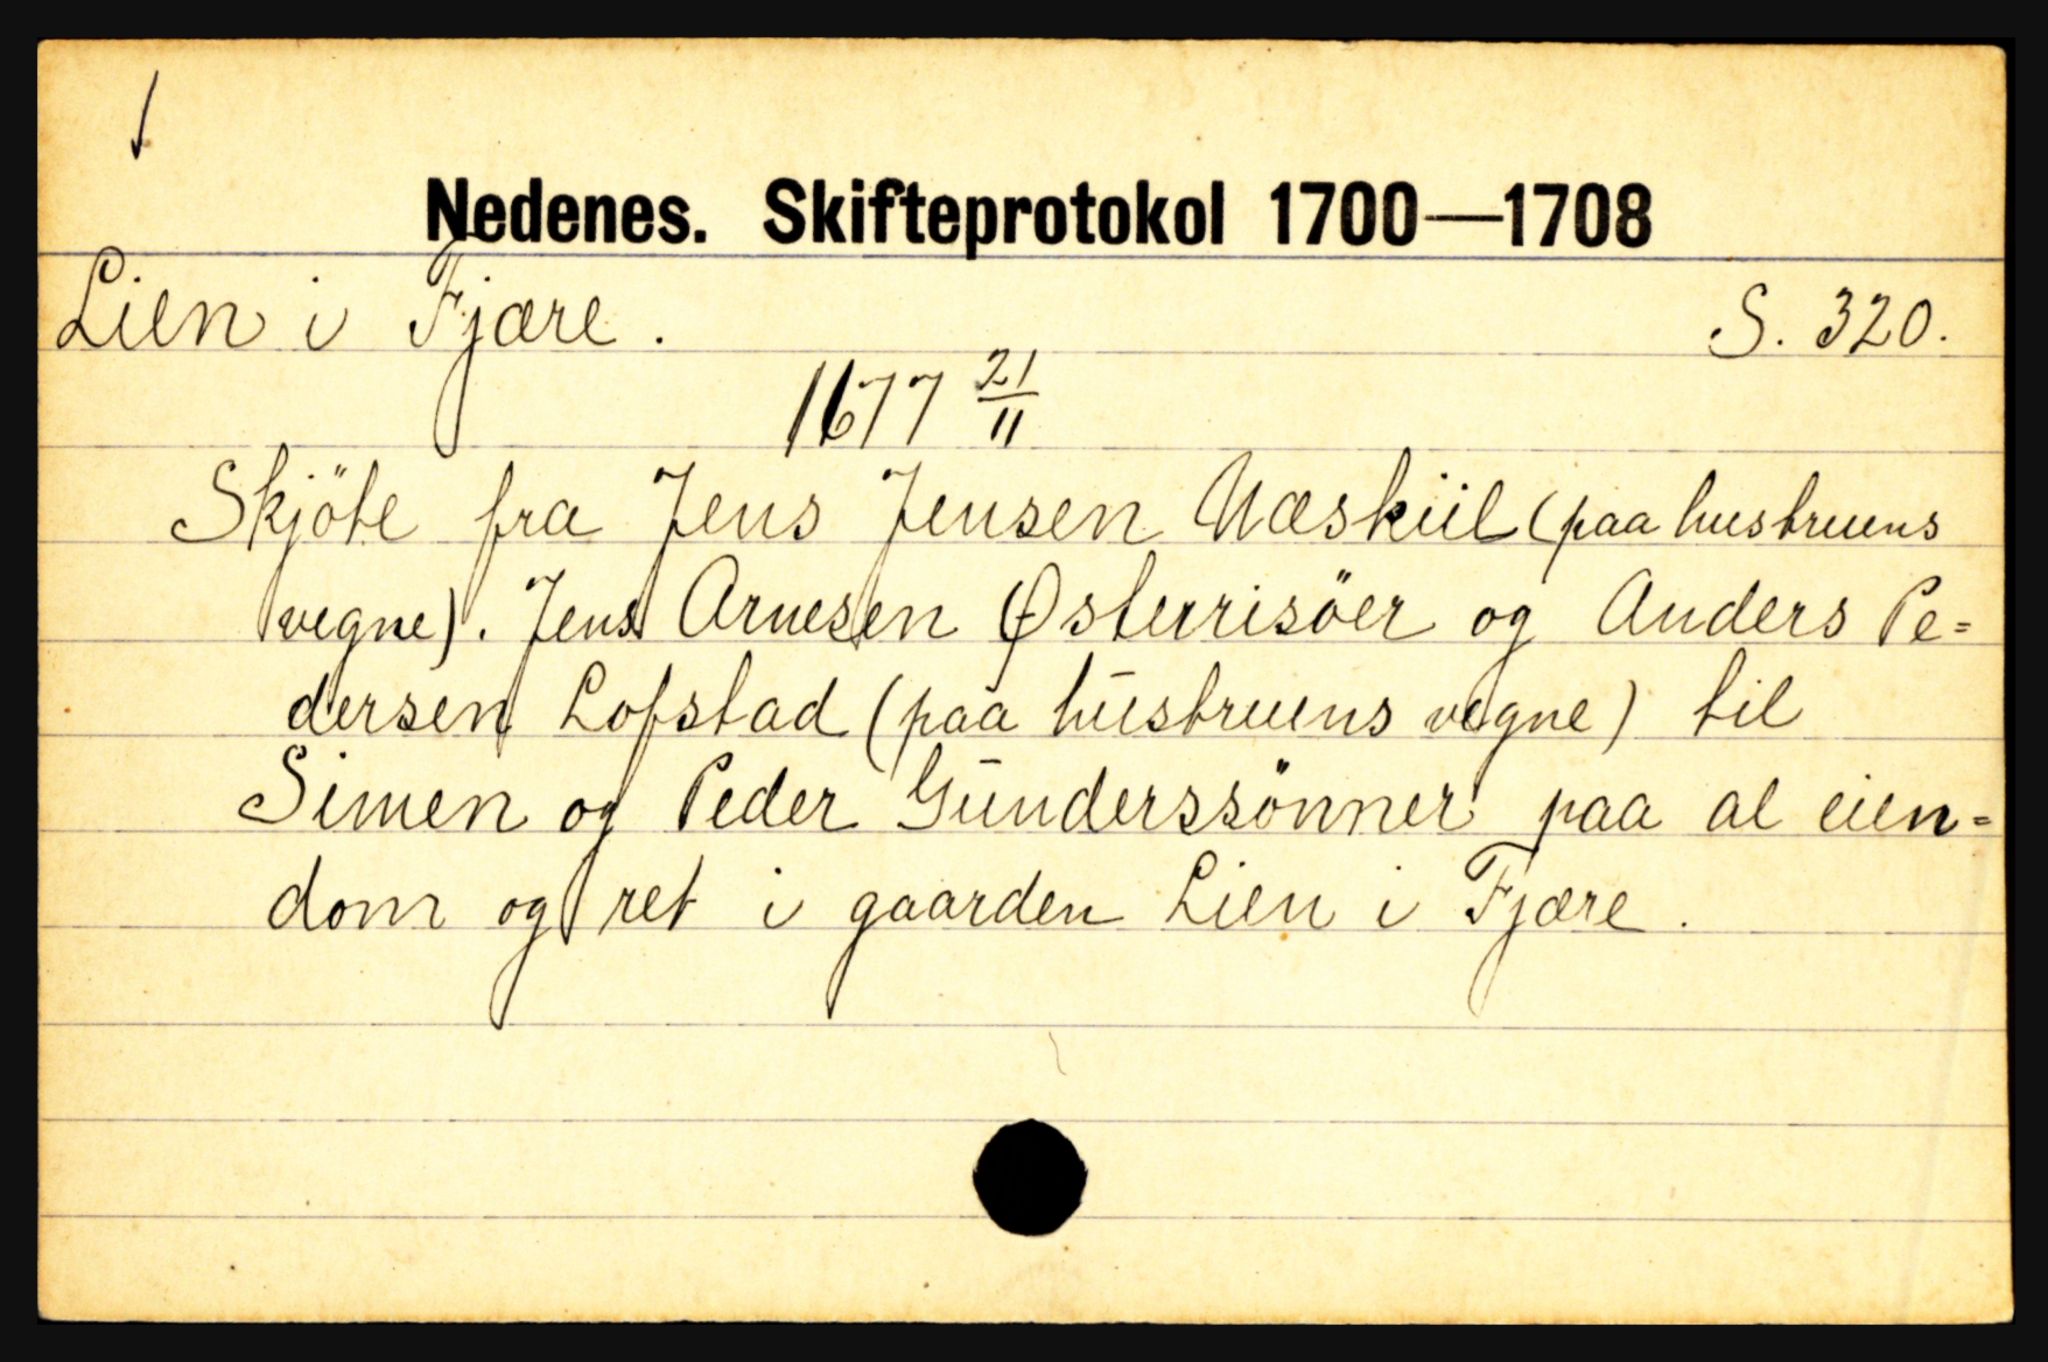 Nedenes. Skifteprotokol 1700—1708
Lien i Fjære. S. 320.
1677 21/11
Skjöte fra Jens Jensen Næskiil (paa hustruens
vegne). Jens Arnesen Østerrisöer og Anders Pe=
dersen Lofstad (paa hūstruens vegne) til
Simen og Peder Gūnderssönner paa al eien=
dom og ret i gaarden Lien i Fjære.